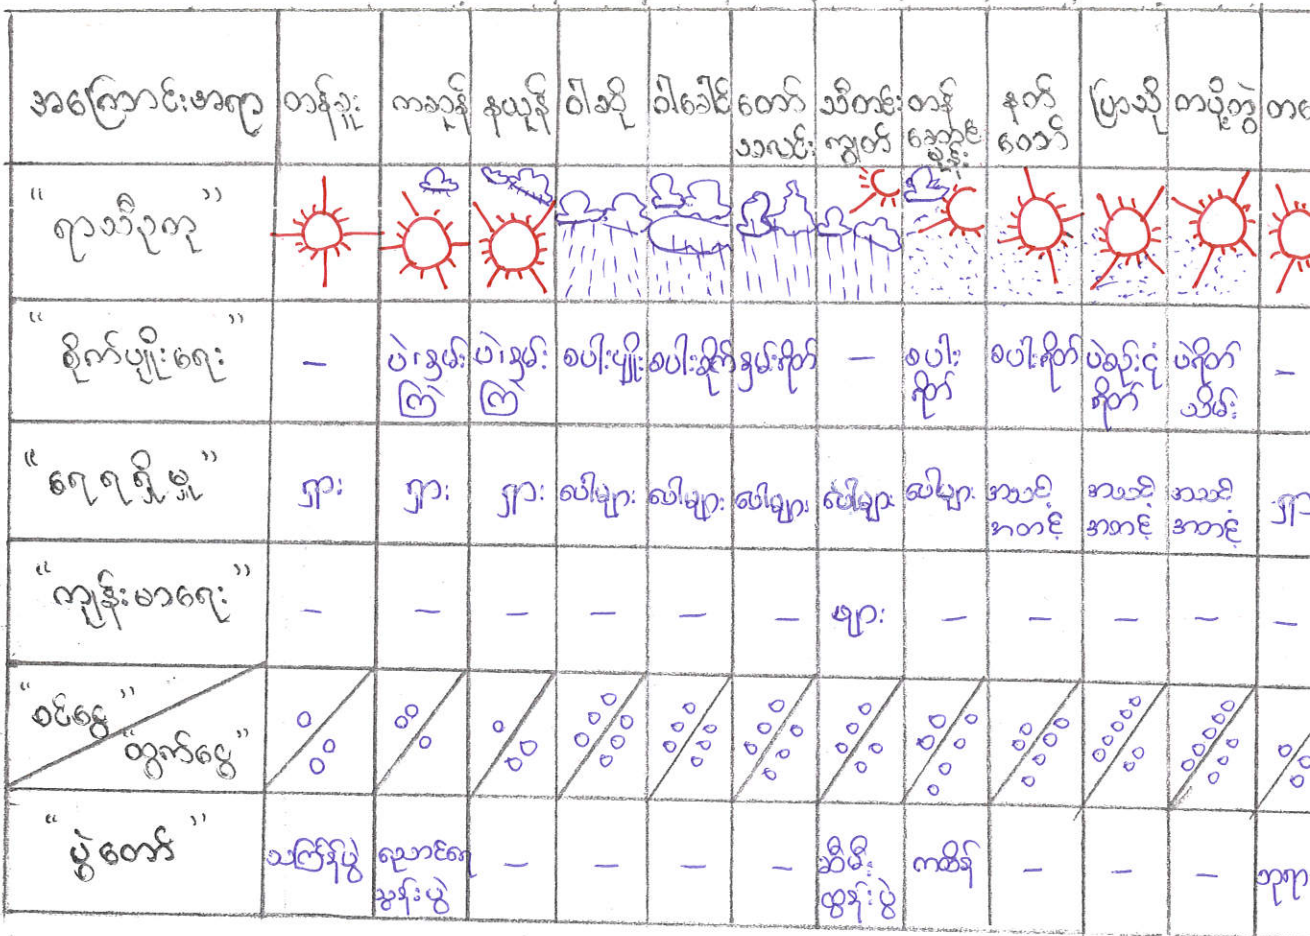 အကြောင်းအရာ တန်ခူး ကဆုန် နယုန် ဝါဆို ဝါခေါင် တော်သလင်း သီတင်းကျွတ် တန်ဆောင်မုန်း နတ်တော် ပြာသို တပို့တွဲ
"ရာသီဥတု"
"စိုက်ပျိုးရေး" – ပဲ၊နှမ်းကြဲ ပဲ၊နှမ်းကြဲ စပါးပျိုး စပါးစိုက် နှမ်းရိတ် – စပါးရိတ် စပါးရိတ် ပဲစဉ်းငုံရိတ် ပဲရိတ်သိမ်း –
"ရေရရှိမှု" ရှား ရှား ရှား ပေါများ ပေါများ ပေါများ ပေါများ ပေါများ အသင့်အတင့် အသင့်အတင့် အသင့်အတင့်
"ကျန်းမာရေး" – – – – – – ဖျား – – – – –
"ဝင်ငွေ"
"ထွက်ငွေ"
"ပွဲတော်" သင်္ကြန်ပွဲ ညောင်ရေသွန်းပွဲ – – – – ဆီမီးထွန်းပွဲ ကထိန် – – –